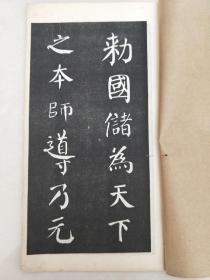 勑國儲為天下
之本師導乃元